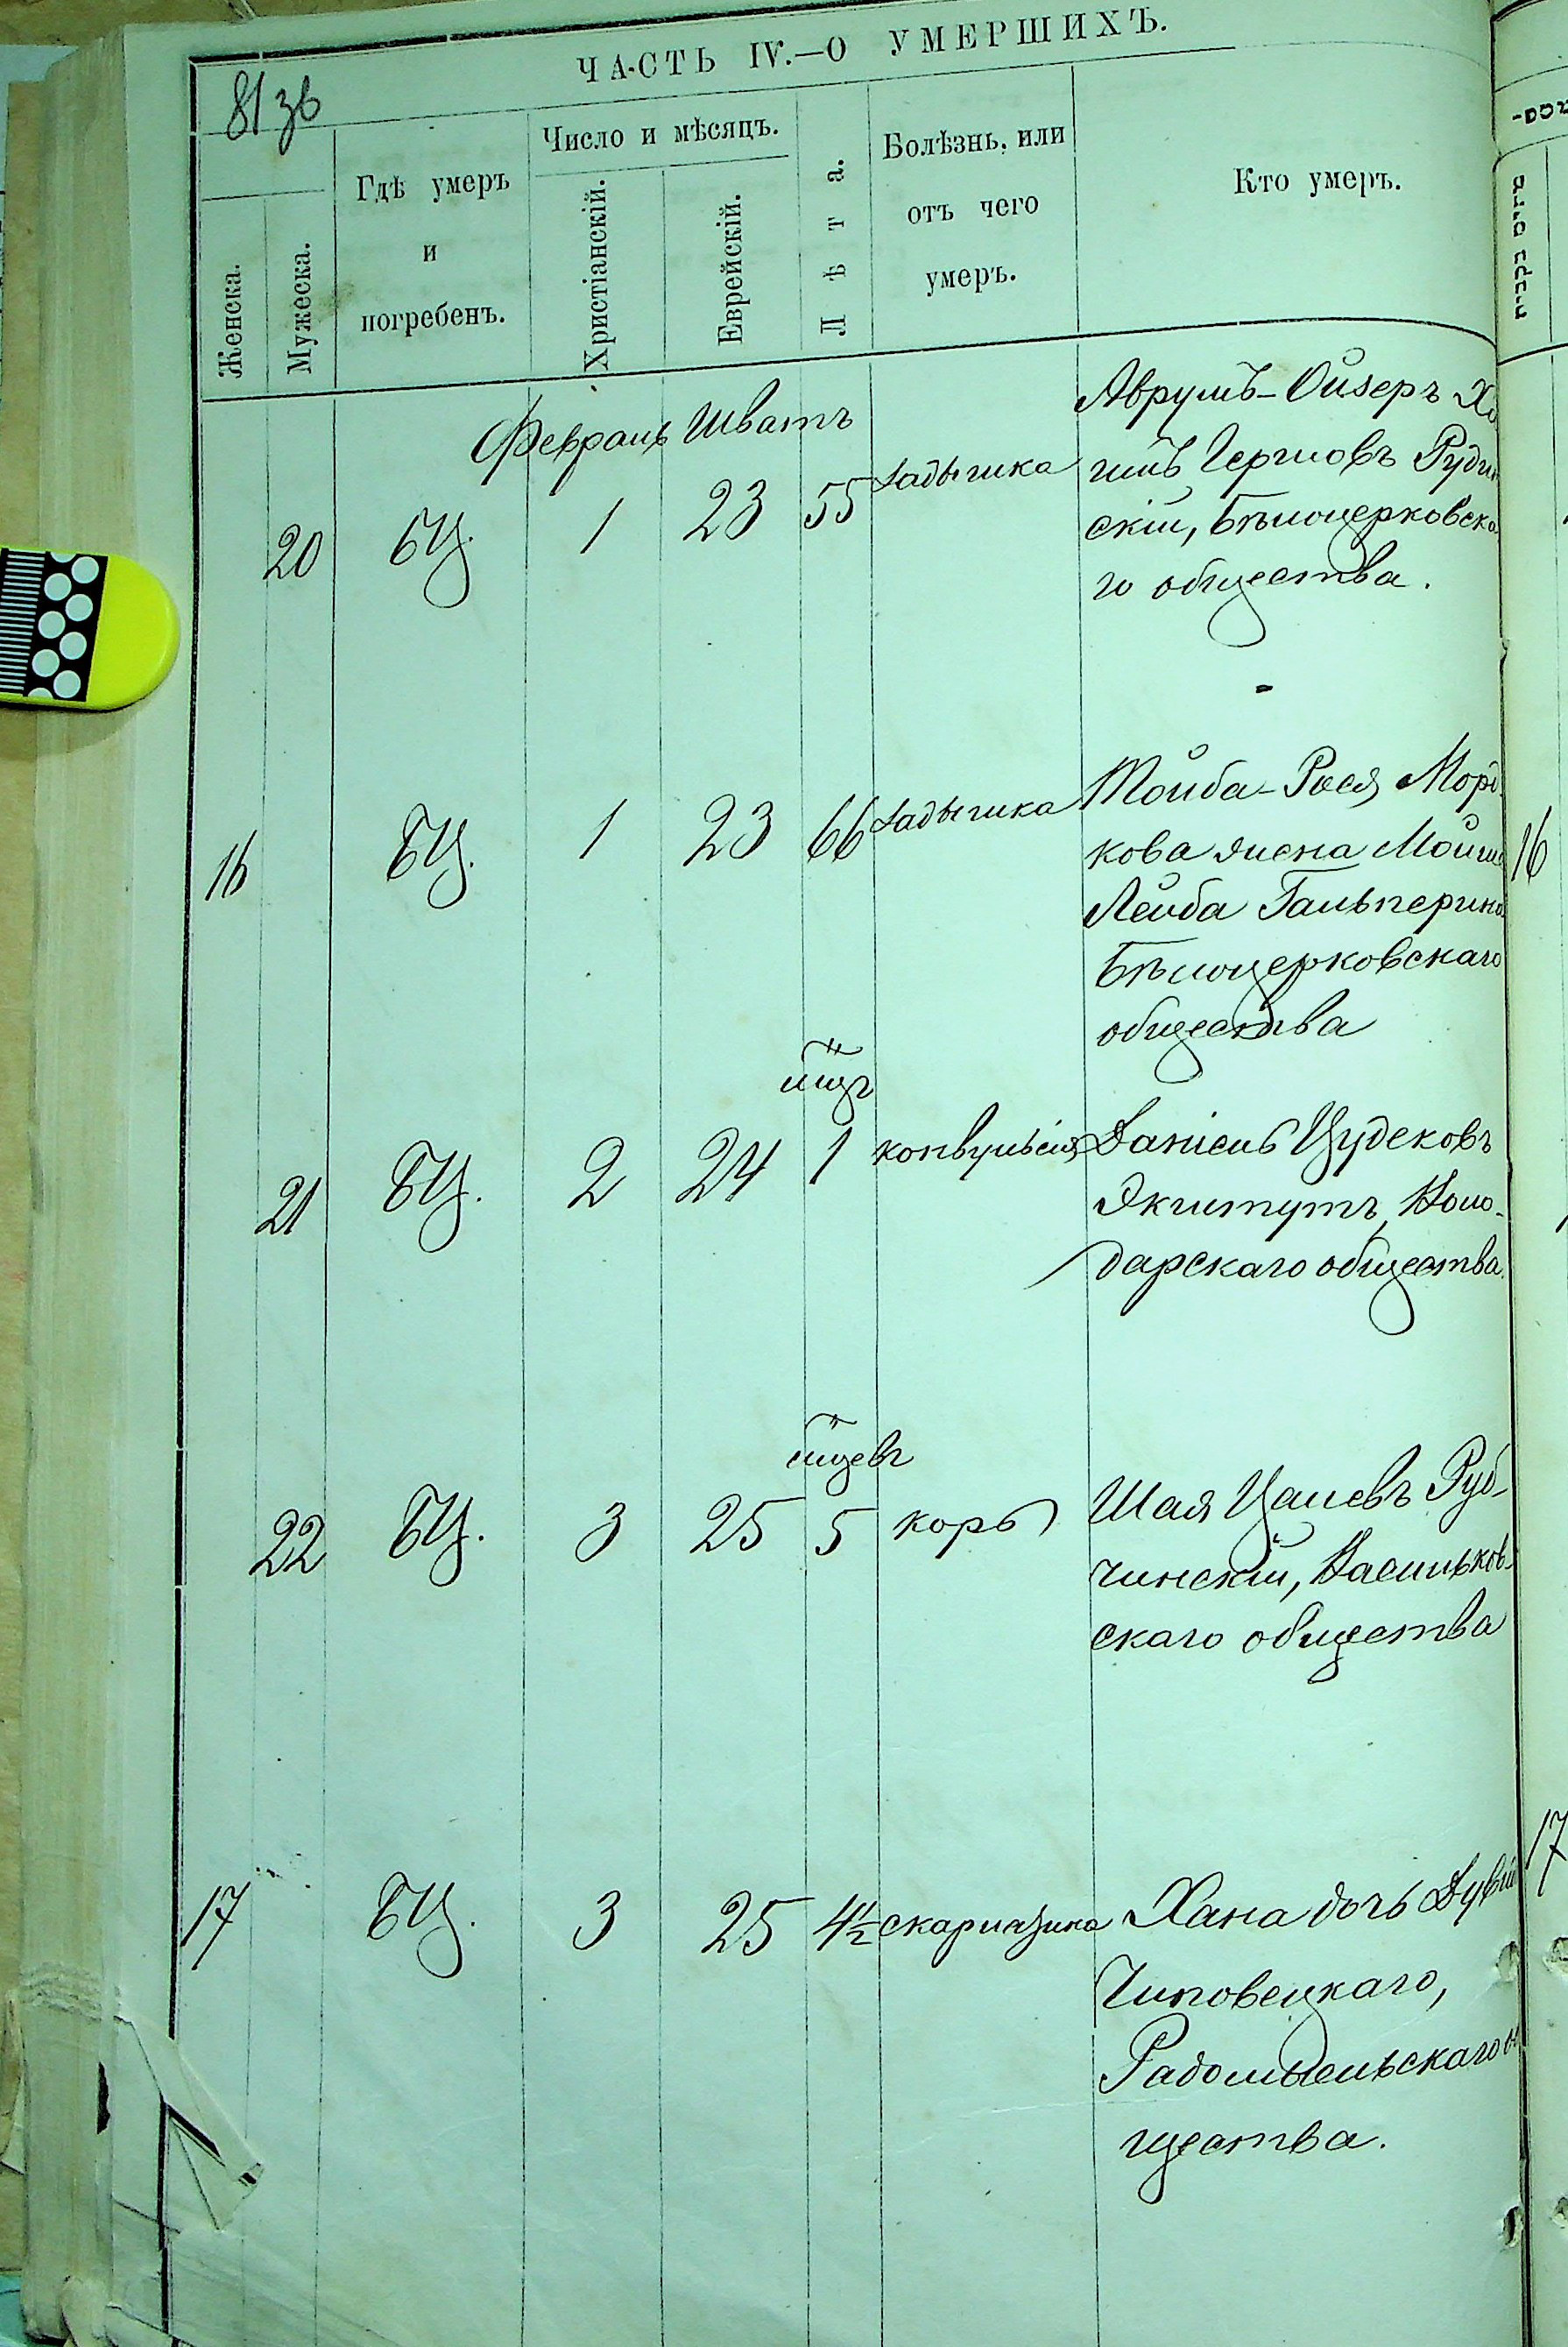 ЧАСТЬ IV.—О УМЕРШИХЪ.
81 зв
Женска.
Мужеска.
Гдѣ умеръ
и
погребенъ.
Число и мѣсяцъ.
Христіанскій.
Еврейскій.
Лѣта.
Болѣзнь, или
отъ чего
умеръ.
Кто умеръ.
Февраль Шватъ
20 БЦ. 1 23 55 Задышка
Аврумъ-Ойзеръ
Рудин
скій, Бѣлоцерковска
го общества.
16 БЦ. 1 23 66 Задышка
Тойба-Рося Морд
кова жена Мойше
Лейба Гальперина
Бѣлоцерковскаго
общества
мцъ
21 БЦ. 2 24 1 конвульсія
Даніель
Воло-
дарскаго общества.
мцевъ
22 БЦ. 3 25 5 корь
Шая Руб-
чинскій, Васильков-
скаго общества
17 БЦ. 3 25 4½ скарлатина
Хана дочь
Чиповецкаго,
Радомысльскаго о
щества.
16
17